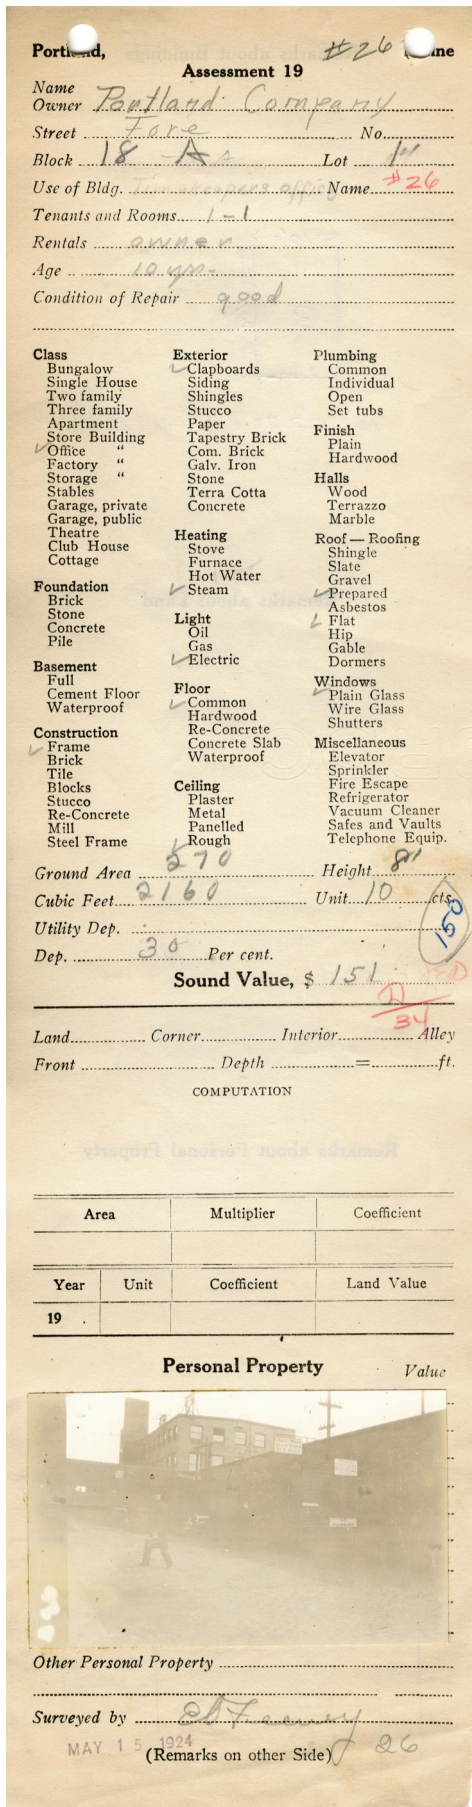 Portland, #26 Maine
Assessment 19
Name
Owner Portland Company
Street Fore No.
Block 18 A Lot 1
Use of Bldg. Timekeepers office Name #26
Tenants and Rooms 1-1
Rentals owner
Age 10 yrs.
Condition of Repair good
Class
Bungalow
Single House
Two family
Three family
Apartment
Store Building
✓ Office "
Factory "
Storage "
Stables
Garage, private
Garage, public
Theatre
Club House
Cottage
Foundation
Brick
Stone
Concrete
Pile
Basement
Full
Cement Floor
Waterproof
Construction
✓ Frame
Brick
Tile
Blocks
Stucco
Re-Concrete
Mill
Steel Frame
Exterior
✓ Clapboards
Siding
Shingles
Stucco
Paper
Tapestry Brick
Com. Brick
Galv. Iron
Stone
Terra Cotta
Concrete
Heating
Stove
Furnace
Hot Water
✓ Steam
Light
Oil
Gas
✓ Electric
Floor
✓ Common
Hardwood
Re-Concrete
Concrete Slab
Waterproof
Ceiling
Plaster
Metal
Panelled
✓ Rough
Plumbing
Common
Individual
Open
Set tubs
Finish
Plain
Hardwood
Halls
Wood
Terrazzo
Marble
Roof — Roofing
Shingle
Slate
Gravel
✓ Prepared
Asbestos
✓ Flat
Hip
Gable
Dormers
Windows
✓ Plain Glass
Wire Glass
Shutters
Miscellaneous
Elevator
Sprinkler
Fire Escape
Refrigerator
Vacuum Cleaner
Safes and Vaults
Telephone Equip.
Ground Area 270 Height 8'
Cubic Feet 2160 Unit 10 cts.
Utility Dep. 150
Dep. 30 Per cent.
Sound Value, $ 151
34
Land Corner Interior Alley
Front Depth = ft.
COMPUTATION
Area Multiplier Coefficient
Year Unit Coefficient Land Value
19
Personal Property Value
Other Personal Property
Surveyed by
MAY 15 1924
(Remarks on other Side) 26